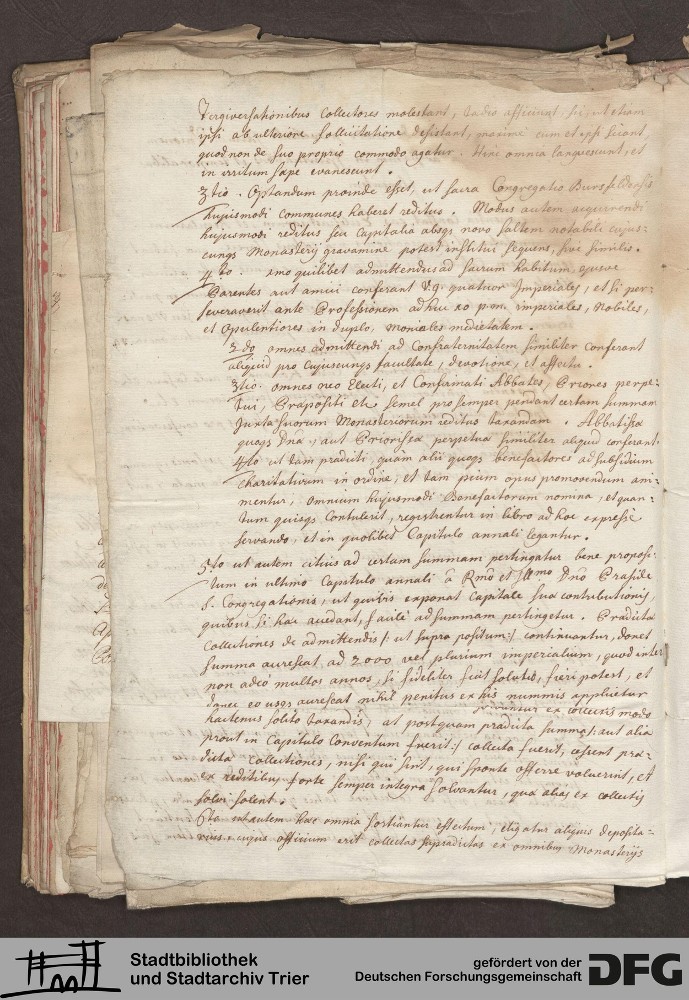 Tergiversationibus Collectores molestant, tædio afficiunt sic, ut etiam
ipsi ab ulteriore sollicitatione desistant, maximè cum et ipsi sciant,
quod non de suo proprio commodo agatur. Hinc omnia languescunt, et
in irritum sæpe evanescunt.
3tio. Optandum proinde esset, ut sacra Congregatio Bursfeldensis
hujusmodi communes haberet reditus. Modus autem acquirendi
hujusmodi reditus seu Capitalia absqs novo saltem notabili cujus=
cunqs Monasterij gravamine potest institui sequens, sive similis.
4to. 1mo quilibet admittendus ad sacrum habitum, ejusve
Parentes aut amici conferant v.g. quatuor Imperiales, et si per=
severaverit ante Professionem adhuc 10 p.m. imperiales, Nobiles,
et Opulentiores in duplo, Moniales medietatem.
2do omnes admittendi ad Confraternitatem similiter conferant
aliquid pro cujuscunqs facultate, devotione, et affectu.
3tio. omnes neo Electi, et Confirmati Abbates, Priores perpe=
tui, Præpositi etc semel pro semper pendant certam summam
juxta suorum Monasteriorum reditus taxandam. Abbatissa
quoqs Dna, aut Priorissa perpetua similiter aliquid conferant.
4to ut tam prædicti, quàm alii quoqs benefactores ad subsidium
charitativum in ordine, et tam pium opus promovendum ani=
mentur, omnium hujusmodi Benefactorum nomina, et quan=
tum quisqs contulerit, registrentur in libro ad hoc expressè
servando, et in quolibet Capitulo annali legantur.
5to ut autem citius ad certam summam pertingatur bene proposi=
tum in ultimo Capitulo annali à Rmo et Illmo Dno Præside
S. Congregationis, ut quivis exponat Capitale suæ contributionis,
quibus si hæc accedant, facilè ad summam pertingetur. Prædictæ
Collectiones de admittendis /: ut supra positum :/ continuantur, donec
summa accrescat ad 2000 vel plurium imperialium, quod inter
non adeò multos annos, si fideliter fiat solutio, fieri potest, et
donec eo usqs accrescat nihil penitus ex his nummis applicetur
solvuntur ex collectis modo
hactenus solito taxandis, at postquam prædicta summa /: aut alia
prout in Capitulo Conventum fuerit :/ collecta fuerit, cessent præ=
dictæ collectiones, nisi qui sint, qui sponte offerre voluerint, et
ex reditibus forte semper integra solvantur, quæ aliàs ex collectis
solvi solent.
6to ut autem hæc omnia sortiantur effectum, eligatur aliquis deposita=
rius, cujus officium erit collectas supradictas ex omnibus Monasterijs
Stadtbibliothek
und Stadtarchiv Trier
gefördert von der
Deutschen Forschungsgemeinschaft
DFG